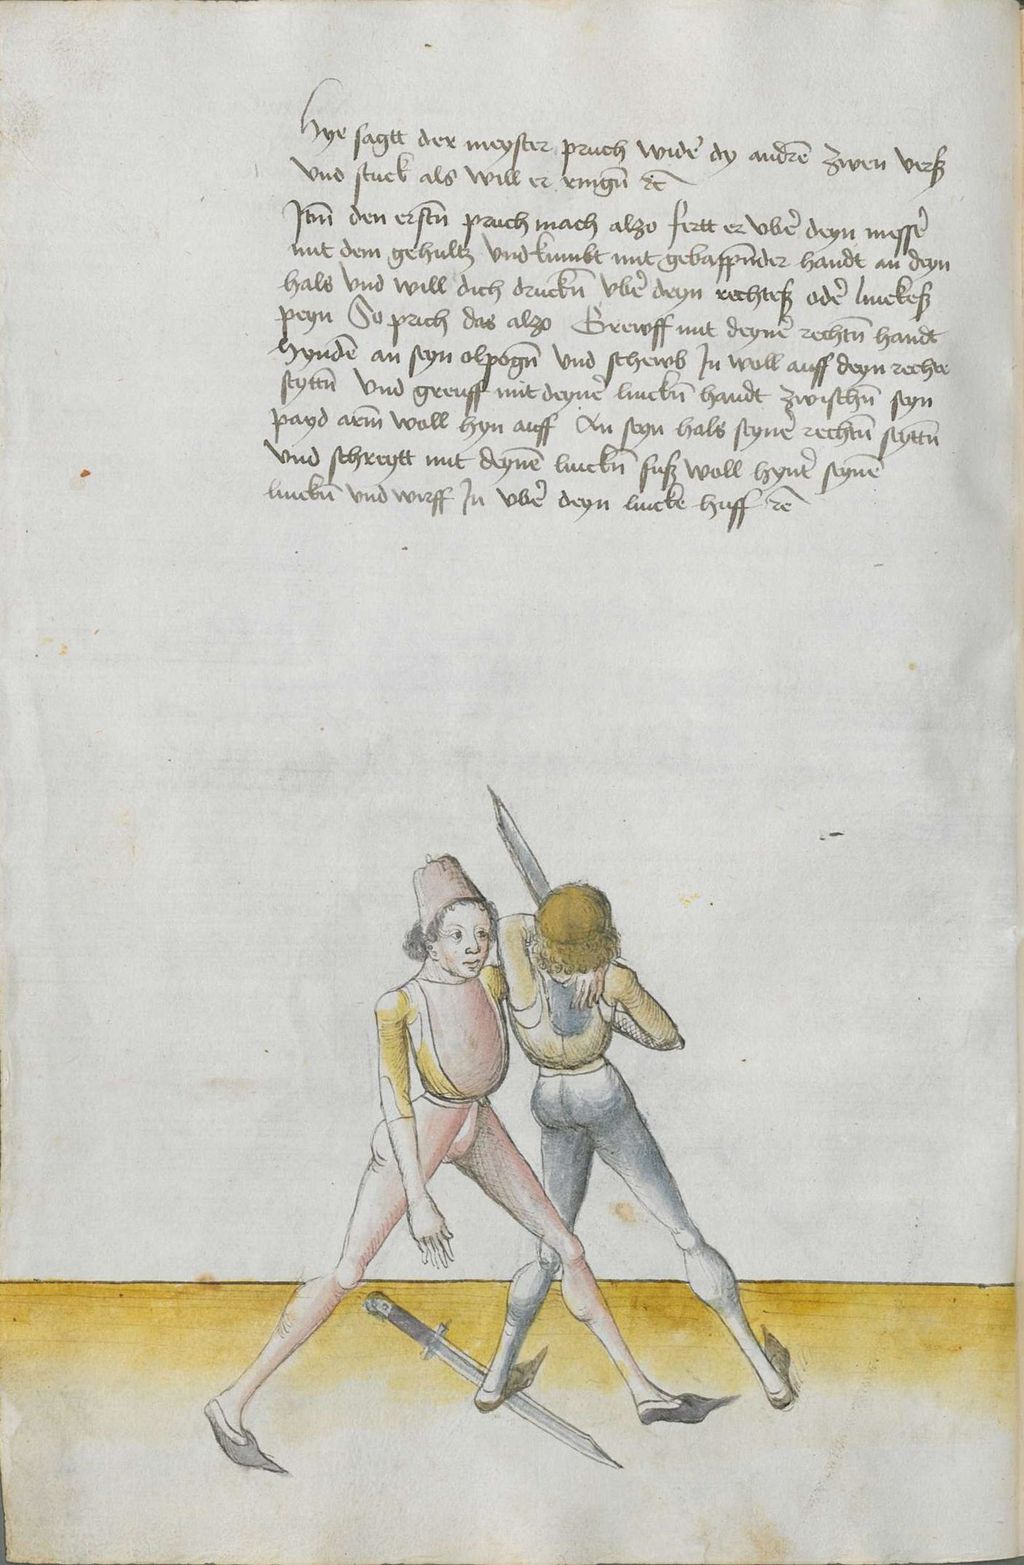 Hye sagtt der meyster pruch wider̄ dy andrē zwen verß
vnd stuck als will er ringn̄ ꝛc̄
Itm̄ den erstn̄ pruch mach alzo fertt er vber̄ deyn messer̄
mit dem gehultz vnd kumbt mit gebappender handt an deyn
hals vnd will dich druckn̄ vber̄ deyn rechteß oder̄ linckeß
peyn So prich das alzo Greiff mit deyner̄ rechtn̄ handt
hynden̄ an seyn elpogn̄ vnd schewb In woll auff deyn rechte
seyttn̄ vnd greuff mit deyner̄ linckn̄ handt zwischn̄ seyn
payd arm̄ woll hyn auff An seyn hals seyner̄ rechtn̄ seyttn̄
vnd schreytt mit deynē linckn̄ fuß woll hynter̄ seynē
linckn̄ vnd wirff In vber̄ deyn lincke huff ꝛc̄